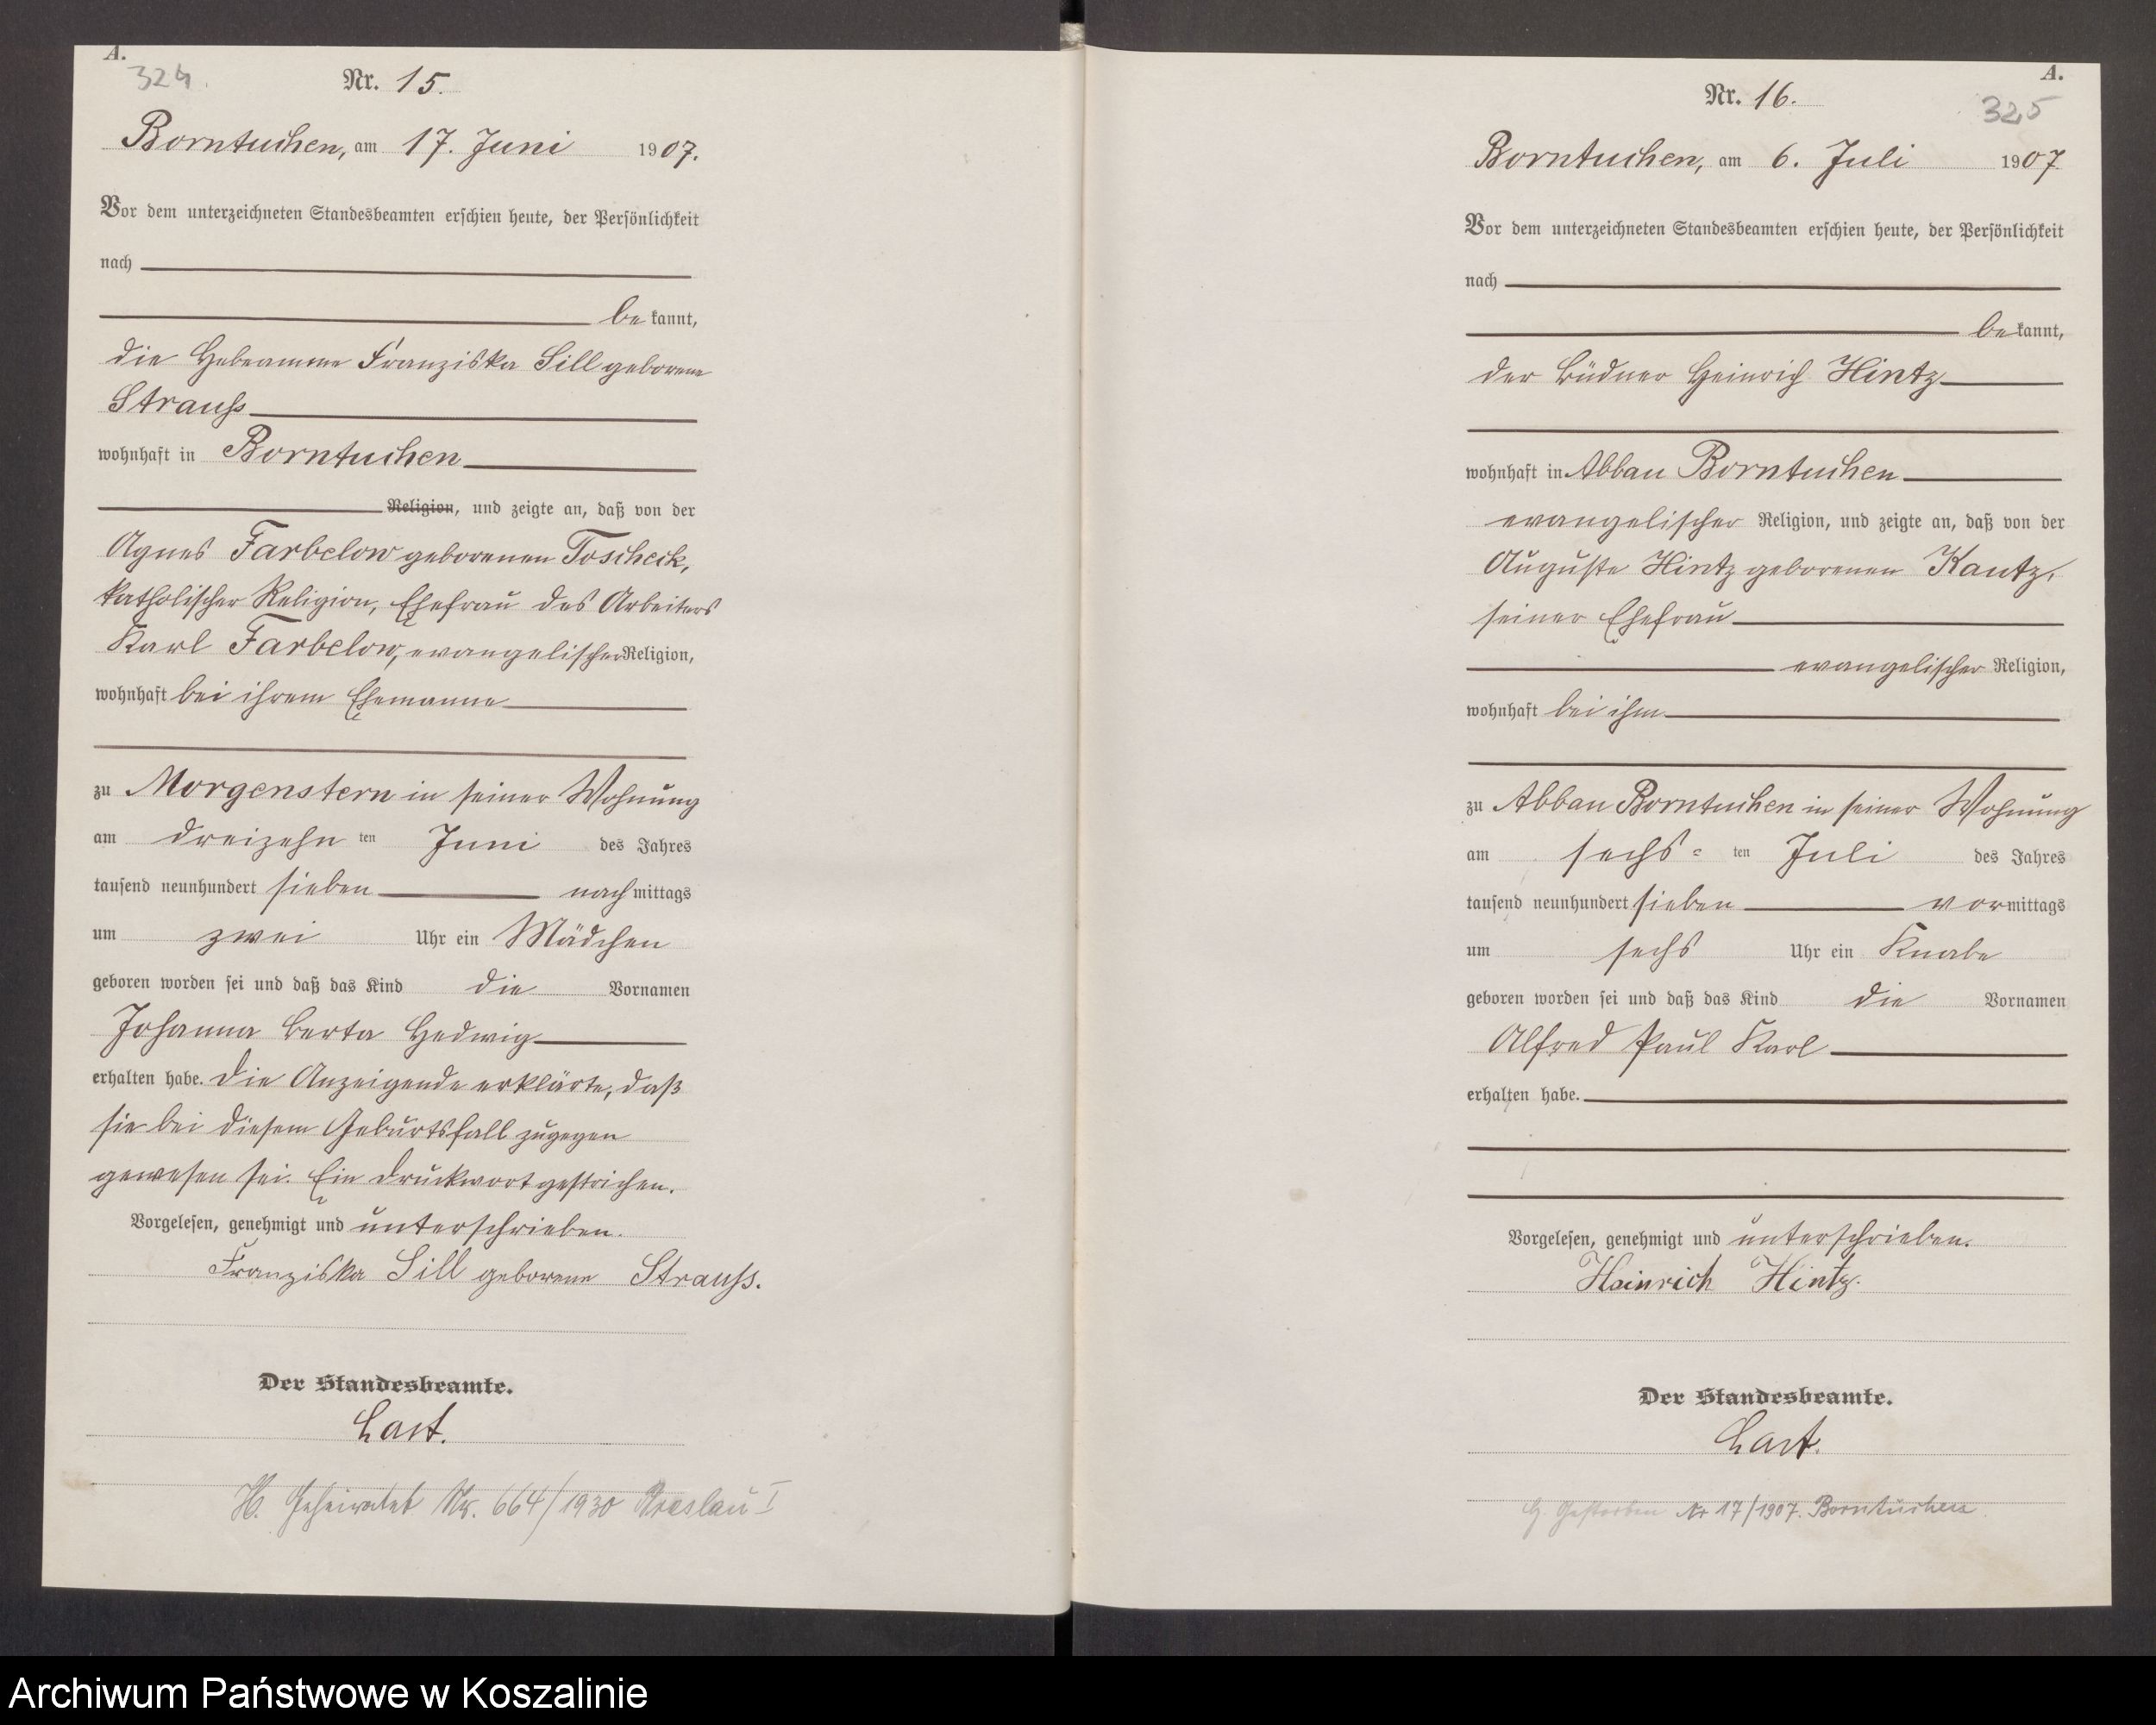 A.
324.
Nr. 15.
Borntuchen, am 17. Juni 1907.
Vor dem unterzeichneten Standesbeamten erschien heute, der Persönlichkeit
nach
bekannt,
die Hebeamme Franziska Sill geborene
Strauss
wohnhaft in Borntuchen
Religion, und zeigte an, daß von der
Agnes Farbelow geborenen Toscheck,
katholischer Religion, Ehefrau des Arbeiters
Karl Farbelow, evangelischer Religion,
wohnhaft bei ihrem Ehemanne
zu Morgenstern in seiner Wohnung
am dreizehnten Juni des Jahres
tausend neunhundert sieben nachmittags
um zwei Uhr ein Mädchen
geboren worden sei und daß das Kind die Vornamen
Johanna Berta Hedwig
erhalten habe. Die Anzeigende erklärte, daß
sie bei diesem Geburtsfall zugegen
gewesen sei. Ein Druckwort gestrichen.
Vorgelesen, genehmigt und unterschrieben.
Franziska Sill geborene Strauss.
Der Standesbeamte.
Last.
H. Geheiratet Nr. 664/1930 Breslau I
A.
325
Nr. 16.
Borntuchen, am 6. Juli 1907
Vor dem unterzeichneten Standesbeamten erschien heute, der Persönlichkeit
nach
bekannt,
der Büdner Heinrich Hintz
wohnhaft in Abbau Borntuchen
evangelischer Religion, und zeigte an, daß von der
Auguste Hintz geborenen Kautz,
seiner Ehefrau
evangelischer Religion,
wohnhaft bei ihm
zu Abbau Borntuchen in seiner Wohnung
am sechs=ten Juli des Jahres
tausend neunhundert sieben vormittags
um sechs Uhr ein Knabe
geboren worden sei und daß das Kind die Vornamen
Alfred Paul Karl
erhalten habe.
Vorgelesen, genehmigt und unterschrieben.
Heinrich Hintz.
Der Standesbeamte.
Last.
Gestorben Nr 17/1907. Borntuchen
Archiwum Państwowe w Koszalinie